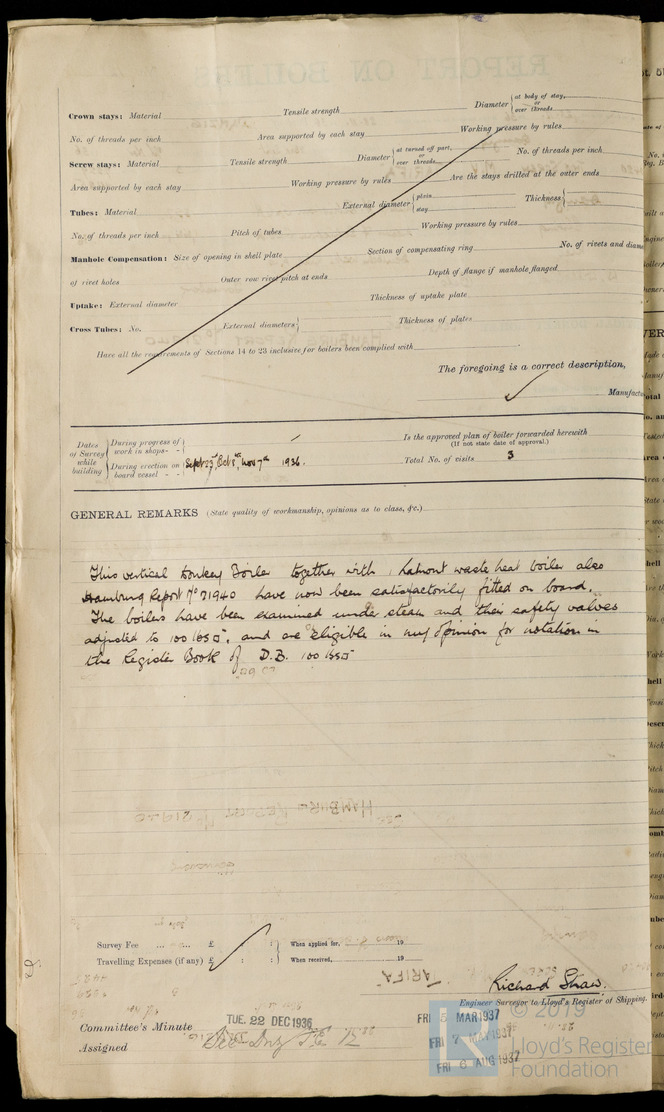 Crown stays: Material Tensile strength Diameter at body of stay, or over threads
No. of threads per inch Area supported by each stay Working pressure by rules
Screw stays: Material Tensile strength Diameter at turned off part, or over threads No. of threads per inch
Area supported by each stay Working pressure by rules Are the stays drilled at the outer ends
Tubes: Material External diameter plain stay Thickness
No. of threads per inch Pitch of tubes Working pressure by rules
Manhole Compensation: Size of opening in shell plate Section of compensating ring No. of rivets and diame
of rivet holes Outer row rivet pitch at ends Depth of flange if manhole flanged
Uptake: External diameter Thickness of uptake plate
Cross Tubes: No. External diameters Thickness of plates
Have all the requirements of Sections 14 to 23 inclusive for boilers been complied with
The foregoing is a correct description,
Manufactu
Dates of Survey while building
During progress of work in shops - -
During erection on board vessel - - Sept 23rd, Oct 8th, Nov 7th 1936.
Is the approved plan of boiler forwarded herewith
(If not state date of approval.)
Total No. of visits 3
GENERAL REMARKS (State quality of workmanship, opinions as to class, &c.)
This vertical Donkey Boiler together with 1 Lamont waste heat boiler also
Hamburg Report No 21940 have now been satisfactorily fitted on board.
The boilers have been examined under steam and their safety valves
adjusted to 100 lbs□", and are eligible in my opinion for notation in
the Register Book of D.B. 100 lbs□"
Survey Fee ... ... £ : : When applied for, 19
Travelling Expenses (if any) £ : : When received, 19
Richard Shaw.
Engineer Surveyor to Lloyd's Register of Shipping.
Committee's Minute TUE. 22 DEC 1936
Assigned
FRI 5 MAR 1937
FRI 7 MAY 1937
FRI 6 AUG 1937
© 2019
Lloyd's Register
Foundation